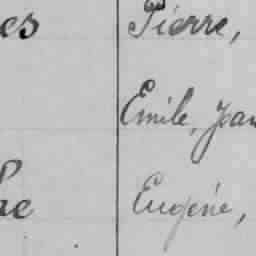 es Pierre,
Emile, Jean
ne Eugène,